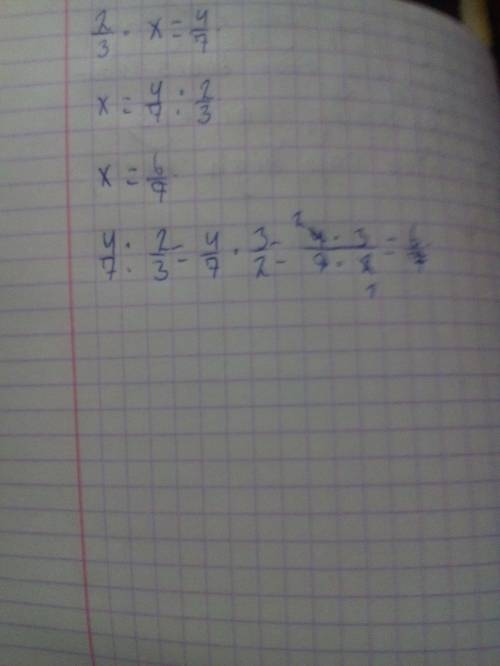 2/3 · x = 4/7
x = 4/7 : 2/3
x = 6/7
4/7 : 2/3 = 4/7 · 3/2 = 4 · 3/7 · 2 = 6/7